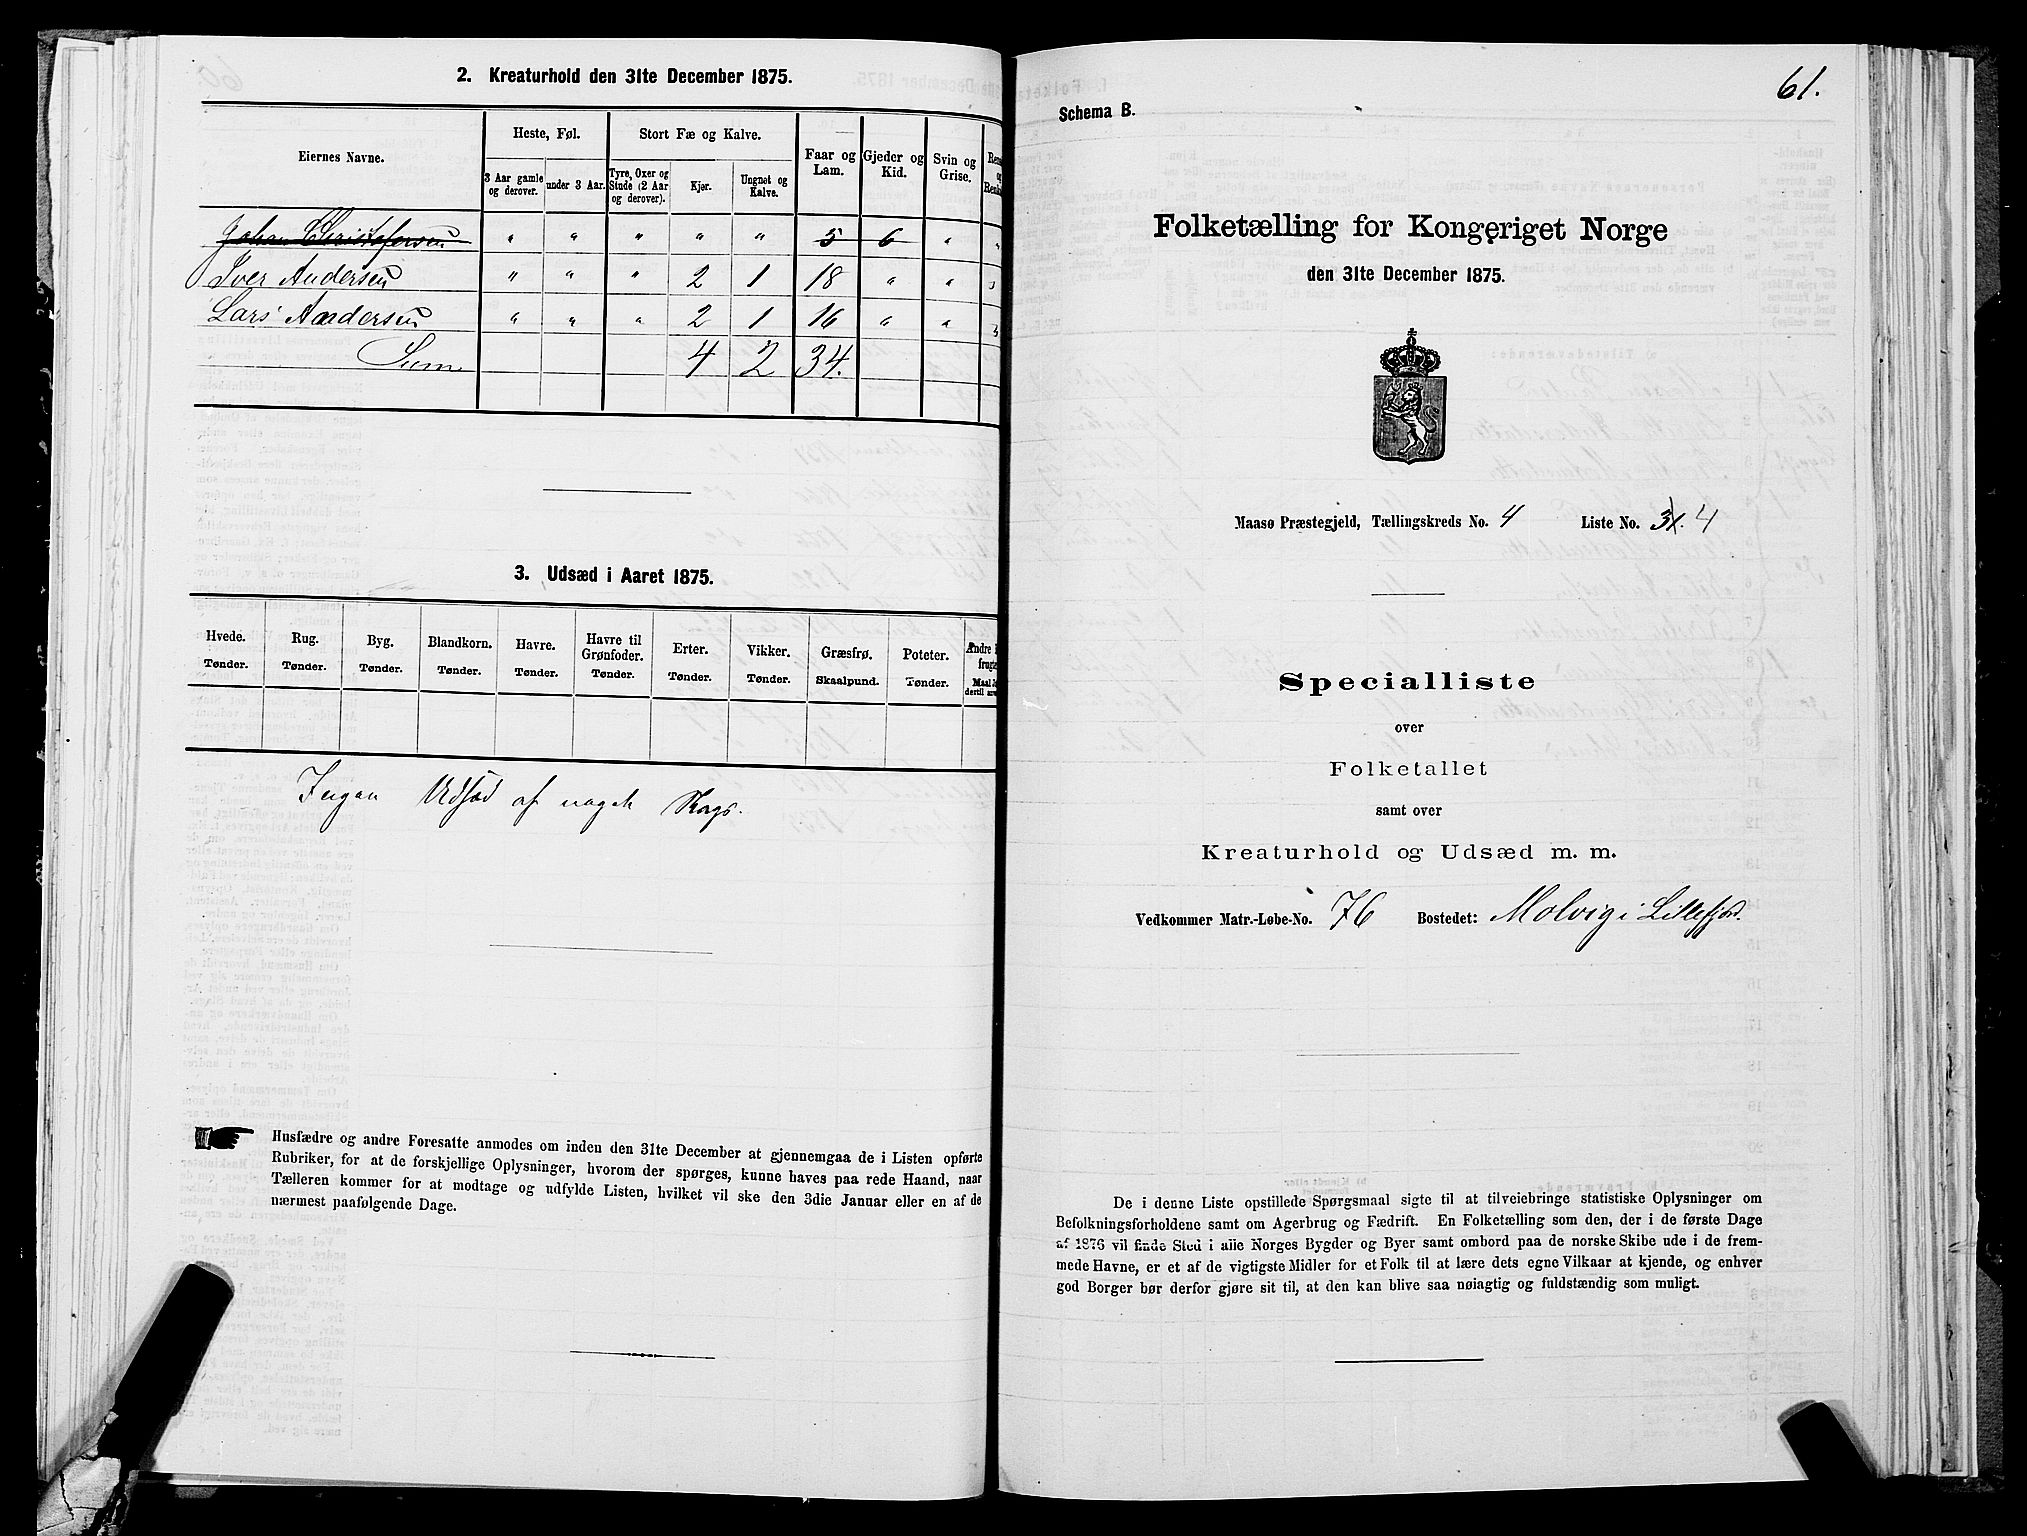 2. Kreaturhold den 31te December 1875.
Eiernes Navne.
Heste, Føl.
Stort Fæ og Kalve.
Faar og Lam.
Gjeder og Kid.
Svin og Grise.
3 Aar gamle og derover.
under 3 Aar.
Tyre, Oxer og Stude (2 Aar og derover).
Kjør.
Ungnøt og Kalve.
Johan Christofersen " " " " " 5 6 " "
Iver Andersen " " " 2 1 18 " " "
Lars Andersen " " " 2 1 16 " " "
Sum 4 2 34.
3. Udsæd i Aaret 1875.
Hvede. Rug. Byg. Blandkorn. Havre. Havre til Grønfoder. Erter. Vikker. Græsfrø. Poteter.
Tønder. Tønder. Tønder. Tønder. Tønder. Tønder. Tønder. Tønder. Skaalpund. Tønder.
Ingen Udsæd af noget Slags.
Husfædre og andre Foresatte anmodes om inden den 31te December at gjennemgaa de i Listen opførte
Rubriker, for at de forskjellige Oplysninger, hvorom der spørges, kunne haves paa rede Haand, naar
Tælleren kommer for at modtage og udfylde Listen, hvilket vil ske den 3die Januar eller en af de
nærmest paafølgende Dage.
61.
Schema B.
Folketælling for Kongeriget Norge
den 31te December 1875.
Maasø Præstegjeld, Tællingskreds No. 4 Liste No. 31. 4
Specialliste
over
Folketallet
samt over
Kreaturhold og Udsæd m. m.
Vedkommer Matr.-Løbe-No. 76 Bostedet: Molvig i Lillefjord.
De i denne Liste opstillede Spørgsmaal sigte til at tilveiebringe statistiske Oplysninger om
Befolkningsforholdene samt om Agerbrug og Fædrift. En Folketælling som den, der i de første Dage
af 1876 vil finde Sted i alle Norges Bygder og Byer samt ombord paa de norske Skibe ude i de frem-
mede Havne, er et af de vigtigste Midler for et Folk til at lære dets egne Vilkaar at kjende, og enhver
god Borger bør derfor gjøre sit til, at den kan blive saa nøiagtig og fuldstændig som muligt.